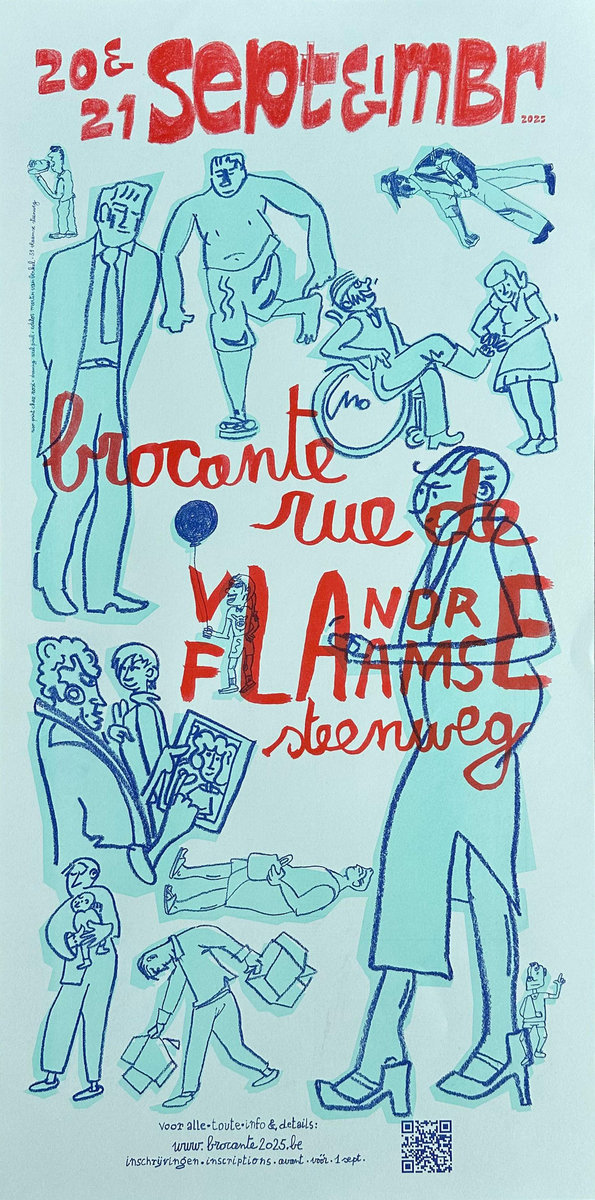 20 &
21 Sept&mbr
2025
brocante
rue de
V LA NDR E
F AMS
steenweg
voor alle • toute • info & details:
www.brocante2025.be
inschrijvingen • inscriptions • avant • vóór • 1 sept.